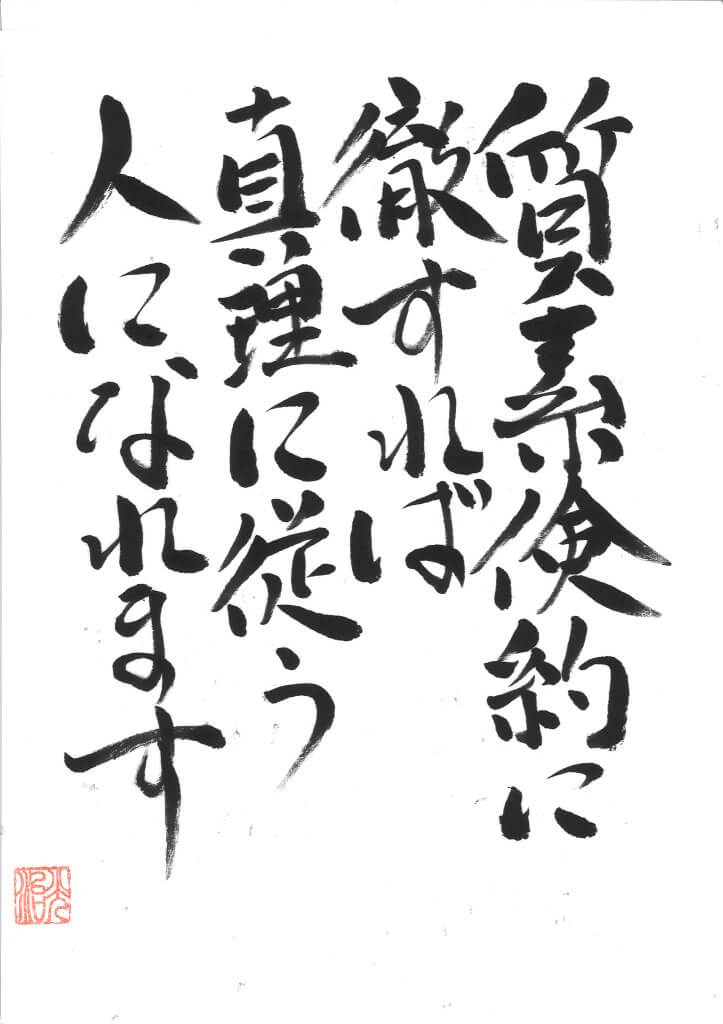 質素倹約に
徹すれば
真理に従う
人になれます